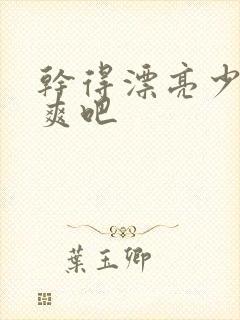 幹得漂亮少
爽吧
葉玉卿